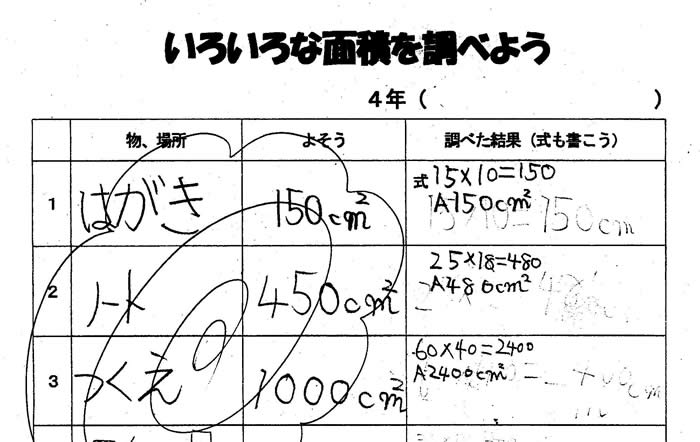 いろいろな面積を調べよう
4年（ ）
物、場所 よそう 調べた結果（式も書こう）
1 はがき 150cm² 式 15×10=150
A150cm²
2 ノート 450cm² 25×18=480
A480cm²
3 つくえ 1000cm² 60×40=2400
A2400cm²